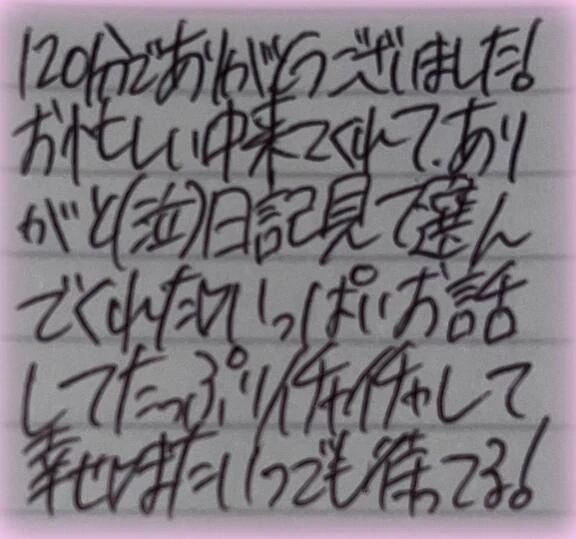 120分でありがとうございました!
お忙しい中来てくれて、あり
がと(泣)日記見て選ん
でくれたりいっぱいお話
してたっぷりイチャイチャして
幸せ!またいつでも待ってる!